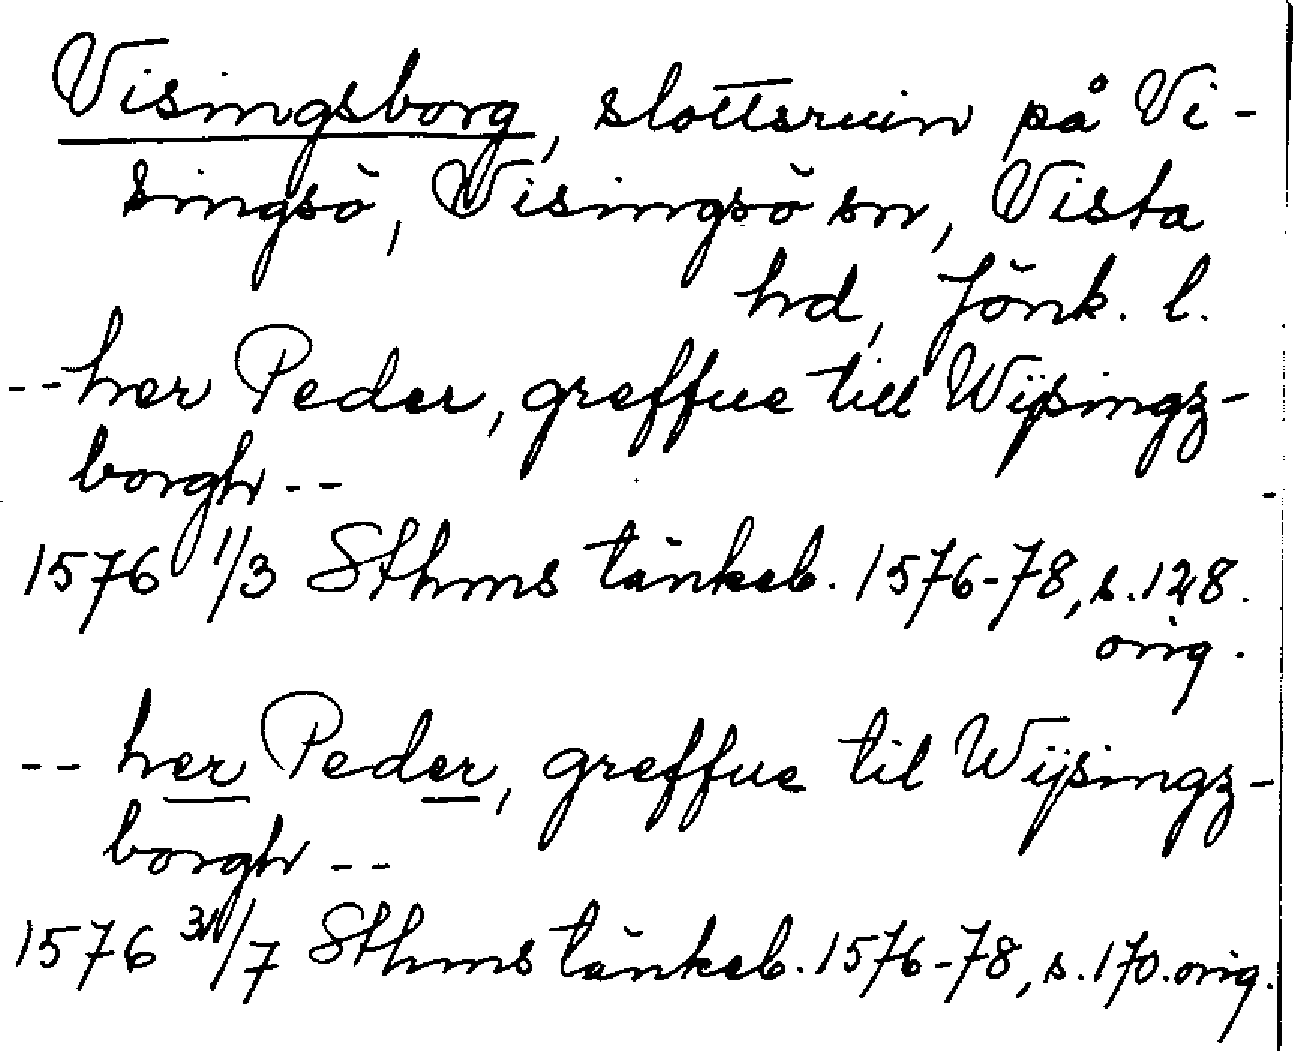 Visingsborg, slottsruin på Vi-
singsö, Visingsö sn, Vista
hd, Jönk. l.
--her Peder, greffue till Wijsingz-
borgh--
1576 1/3 Sthms tänkeb. 1576-78, s. 128.
orig.
-- her Peder, greffue til Wijsingz-
borgh --
1576 /7 Sthms tänkeb. 1576-78, s. 170. orig.